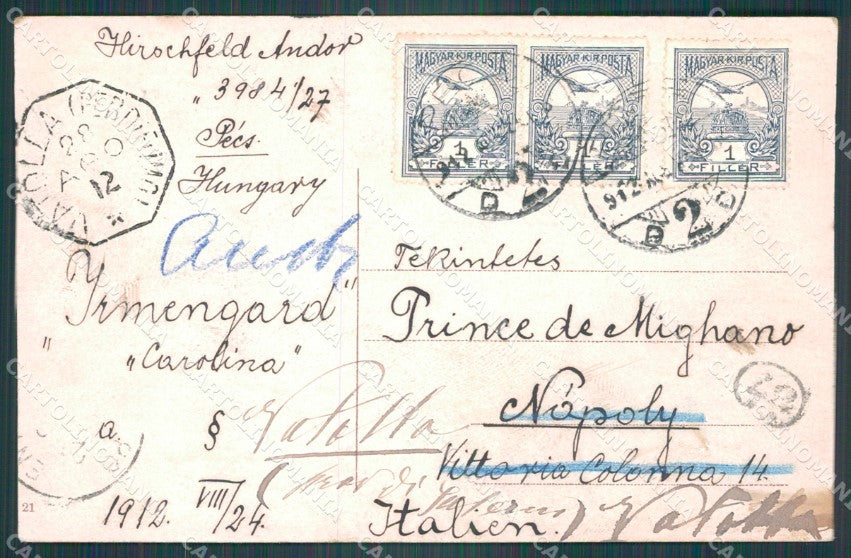 Hirschfeld Andor
„ 3984/27
Pécs.
Hungary
VATOLLA (PERDIFUMO)
12
MAGYAR·KIR·POSTA
1
FILLÉR
MAGYAR·KIR·POSTA
1
FILLÉR
MAGYAR·KIR·POSTA
1
FILLÉR
912
D 2
912
D 2
„Irmengard”
„Carolina”
a §
1912. VIII/24.
21
Tekintetes
Prince de Mighano
Nápoly
Vittoria Colonna 14.
Italien.
Vatolla
Vatolla
CARTOLINOMANIA